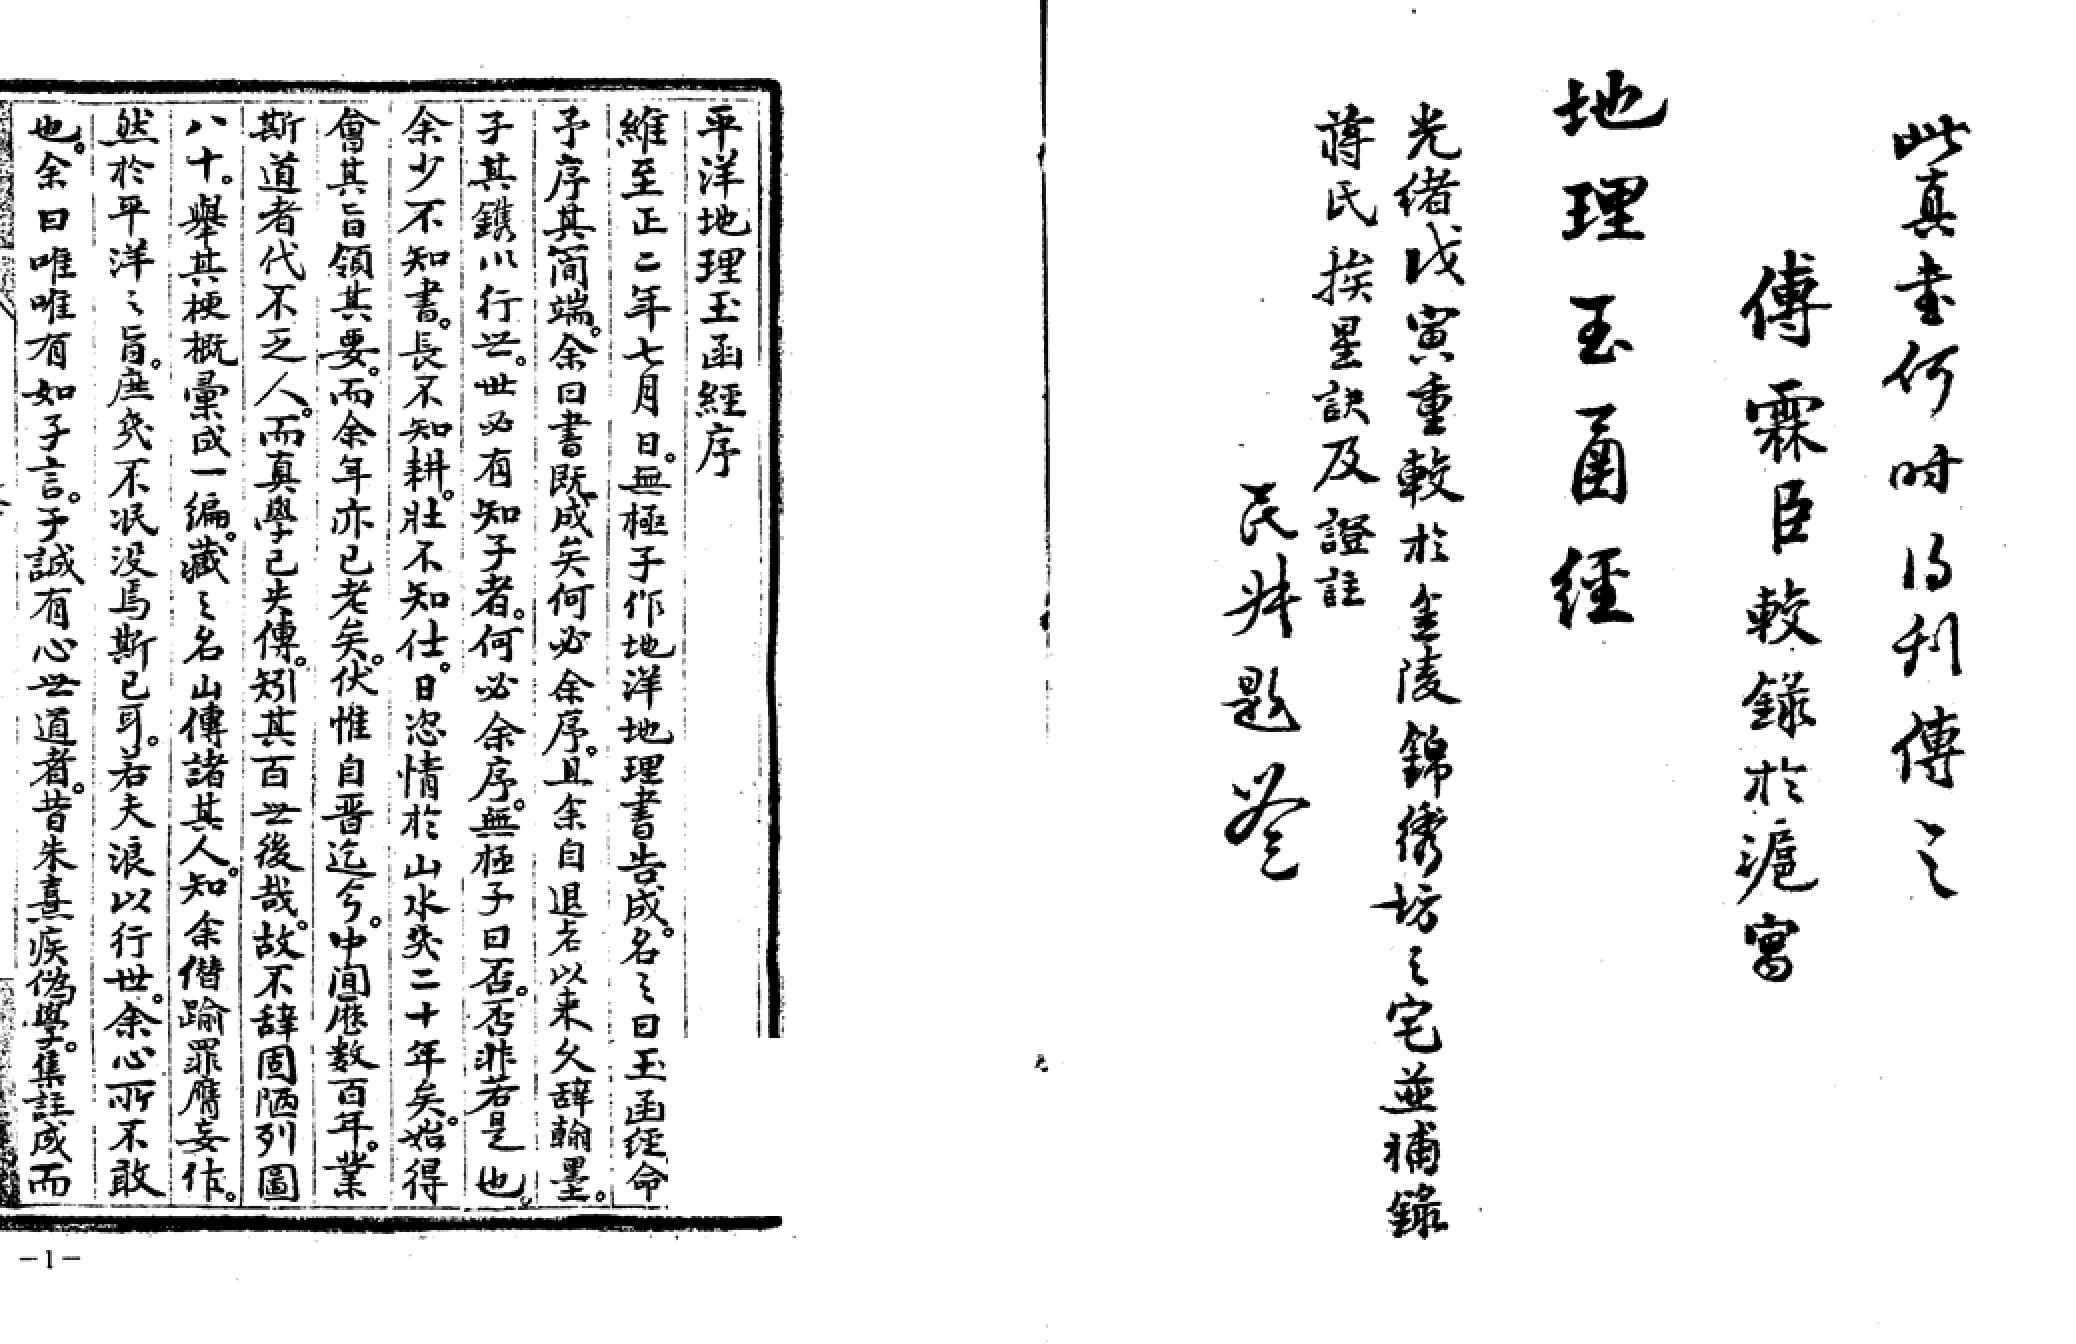 此真書何时得刊傳之
傅霖臣較錄於滬寓
地理玉函經
光緒戊寅重較於金陵錦繡坊之宅並補錄
蔣氏挨星訣及證註
民甘題簽
平洋地理玉函經序
維至正二年七月日。無極子作地洋地理書告成。名之曰玉函經命
予序其简端。余曰書既成矣何必余序。且余自退右以来久辞翰墨。
子其鐫以行世。世必有知子者。何必余序。無極子曰否。否非若是也。
余少不知書。長不知耕。壯不知仕。日恣情於山水癸二十年矣。始得
會其旨領其要。而余年亦已老矣。伏惟自晋迄今。中间歷数百年。業
斯道者代不乏人。而真學已失傳。矧其百世後哉。故不辞固陋列圖
八十。舉其梗概彙成一编。藏之名山傳諸其人。知余僭踰罪膺妄作。
然於平洋之旨。庶幾不泯没焉斯已耳。若夫浪以行世。余心所不敢
也。余曰唯唯有如子言。予誠有心世道者。昔朱熹疾偽學。集註成而
-1-